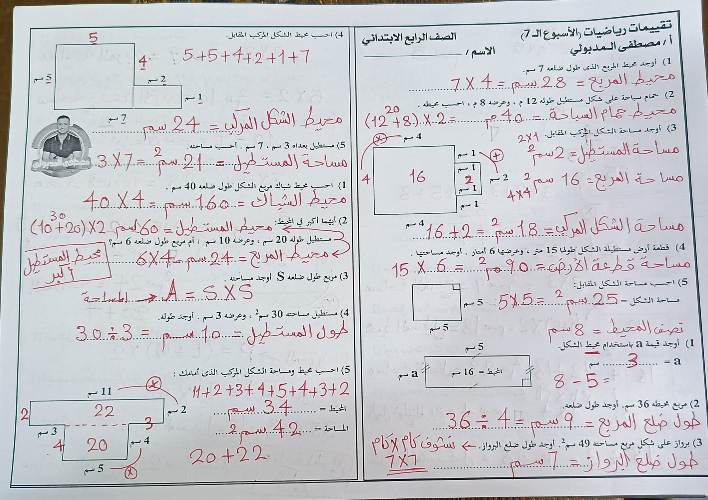 تقييمات رياضيات (الأسبوع الـ 7)
أ / مصطفى المدبولي
الصف الرابع الابتدائي
الاسم /
1) أوجد محيط المربع الذى طول ضلعه 7 سم.
محيط المربع = 28 سم 7 X 4
2) حمام سباحة على شكل مستطيل طوله 12 م ، وعرضه 8 م ، احسب محيطه.
محيط حمام السباحة = 40 م = 2 X (12 + 8)
20
3) أوجد مساحة الشكل المركب المقابل.
2X1
مساحة المستطيل = 2 سم2
4X4
مساحة المربع = 16 سم2
4 سم
4
16
1 سم
1 سم
2
1 سم
1 سم
2 سم
4 سم
مساحة الشكل المركب = 18 سم2 = 16 + 2
4) قطعة أرض مستطيلة الشكل طولها 15 متر ، وعرضها 6 أمتار ، أوجد مساحتها.
مساحة قطعة الأرض = 90 م2 = 15 X 6
5) احسب مساحة الشكل المقابل:
مساحة الشكل = 25 سم2 = 5X5
5 سم
5 سم
نصف المحيط = 8 سم
1) أوجد قيمة a باستخدام محيط الشكل.
a = 3 سم
8 - 5 =
5 سم
a سم
المحيط = 16 سم
2) مربع محيطه 36 سم أوجد طول ضلعه.
طول ضلع المربع = 9 سم = 36 ÷ 4
3) برواز على شكل مربع مساحته 49 سم2 ، أوجد طول ضلع البرواز.
طول ضلع البرواز = 7 سم
7X7
4) احسب محيط الشكل المركب المقابل.
5+5+4+2+1+7
5
4
5 سم
2 سم
1 سم
7 سم
محيط الشكل المركب = 24 سم
5) مستطيل بعداه 3 سم ، 7 سم ، أحسب مساحته.
مساحة المستطيل = 21 سم2 = 3 X 7
1) احسب محيط شباك مربع الشكل طول ضلعه 40 سم.
محيط الشباك = 160 سم = 40 X 4
2) أيهما أكبر في المحيط:
محيط المستطيل = 60 سم (10 + 20) X2
30
مستطيل طوله 20 سم ، وعرضه 10 سم ، أم مربع طول ضلعه 6 سم؟
محيط المربع = 24 سم = 6X4
محيط المستطيل أكبر
3) مربع طول ضلعه S أوجد مساحته.
المساحة → A = S X S
4) مستطيل مساحته 30 سم2 ، وعرضه 3 سم ، أوجد طوله.
طول المستطيل = 10 سم = 30 ÷ 3
5) احسب محيط ومساحة الشكل المركب الذى أمامك :
11+2+3+4+5+4+3+2
المحيط = 34 سم
المساحة = 42 سم2
20 + 22
11 سم
2
22
2 سم
3 سم
3
4
20
4 سم
5 سم